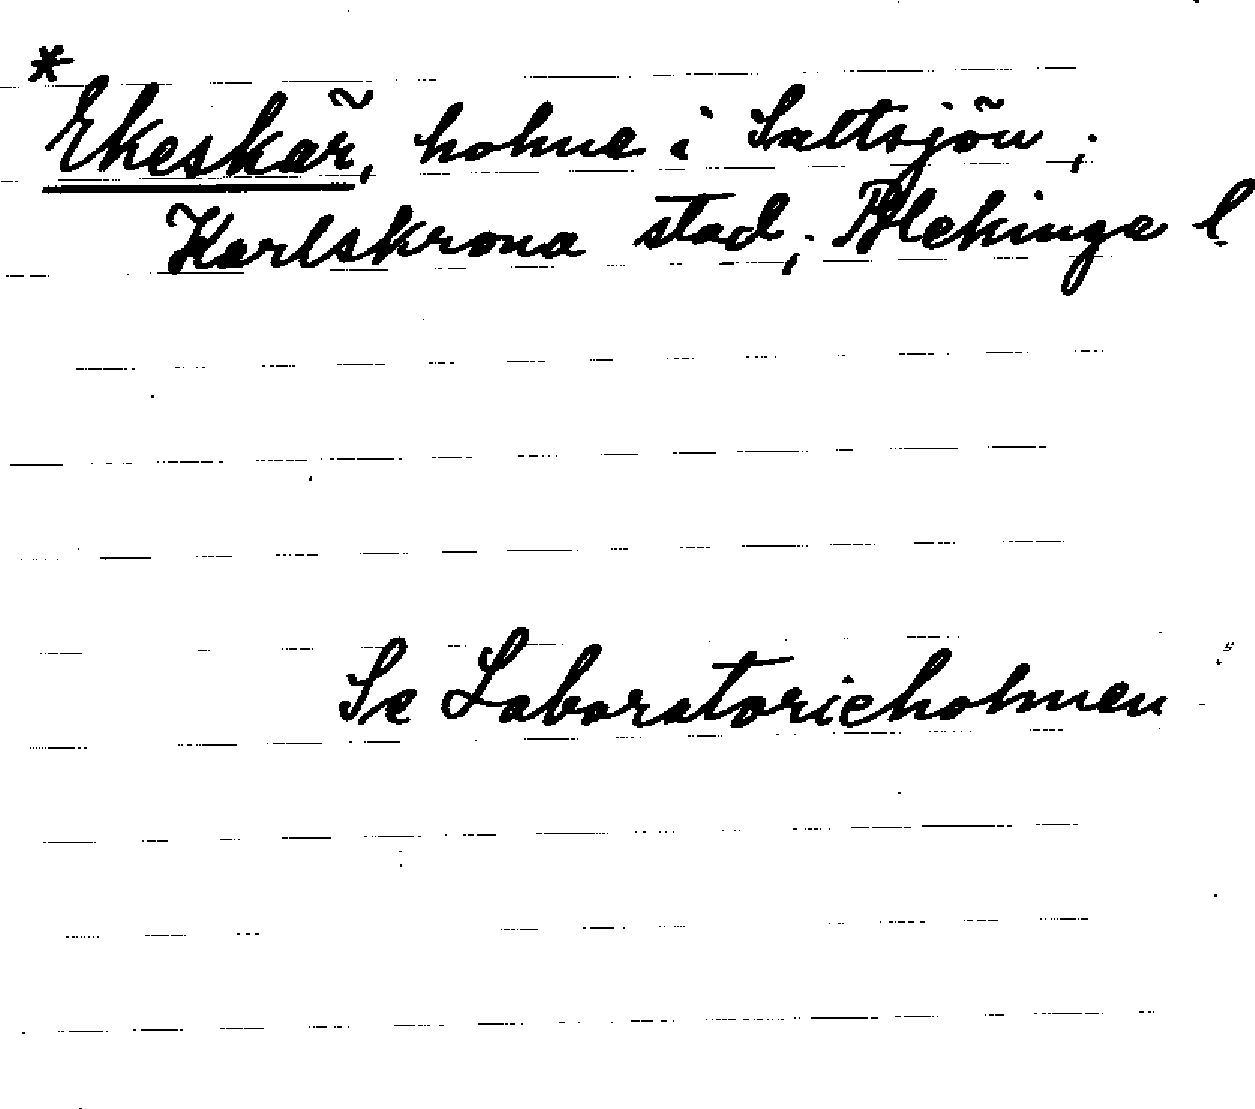 * Ekeskär, holme i Saltsjön;
Karlskrona stad; Blekinge l.
Se Laboratorieholmen